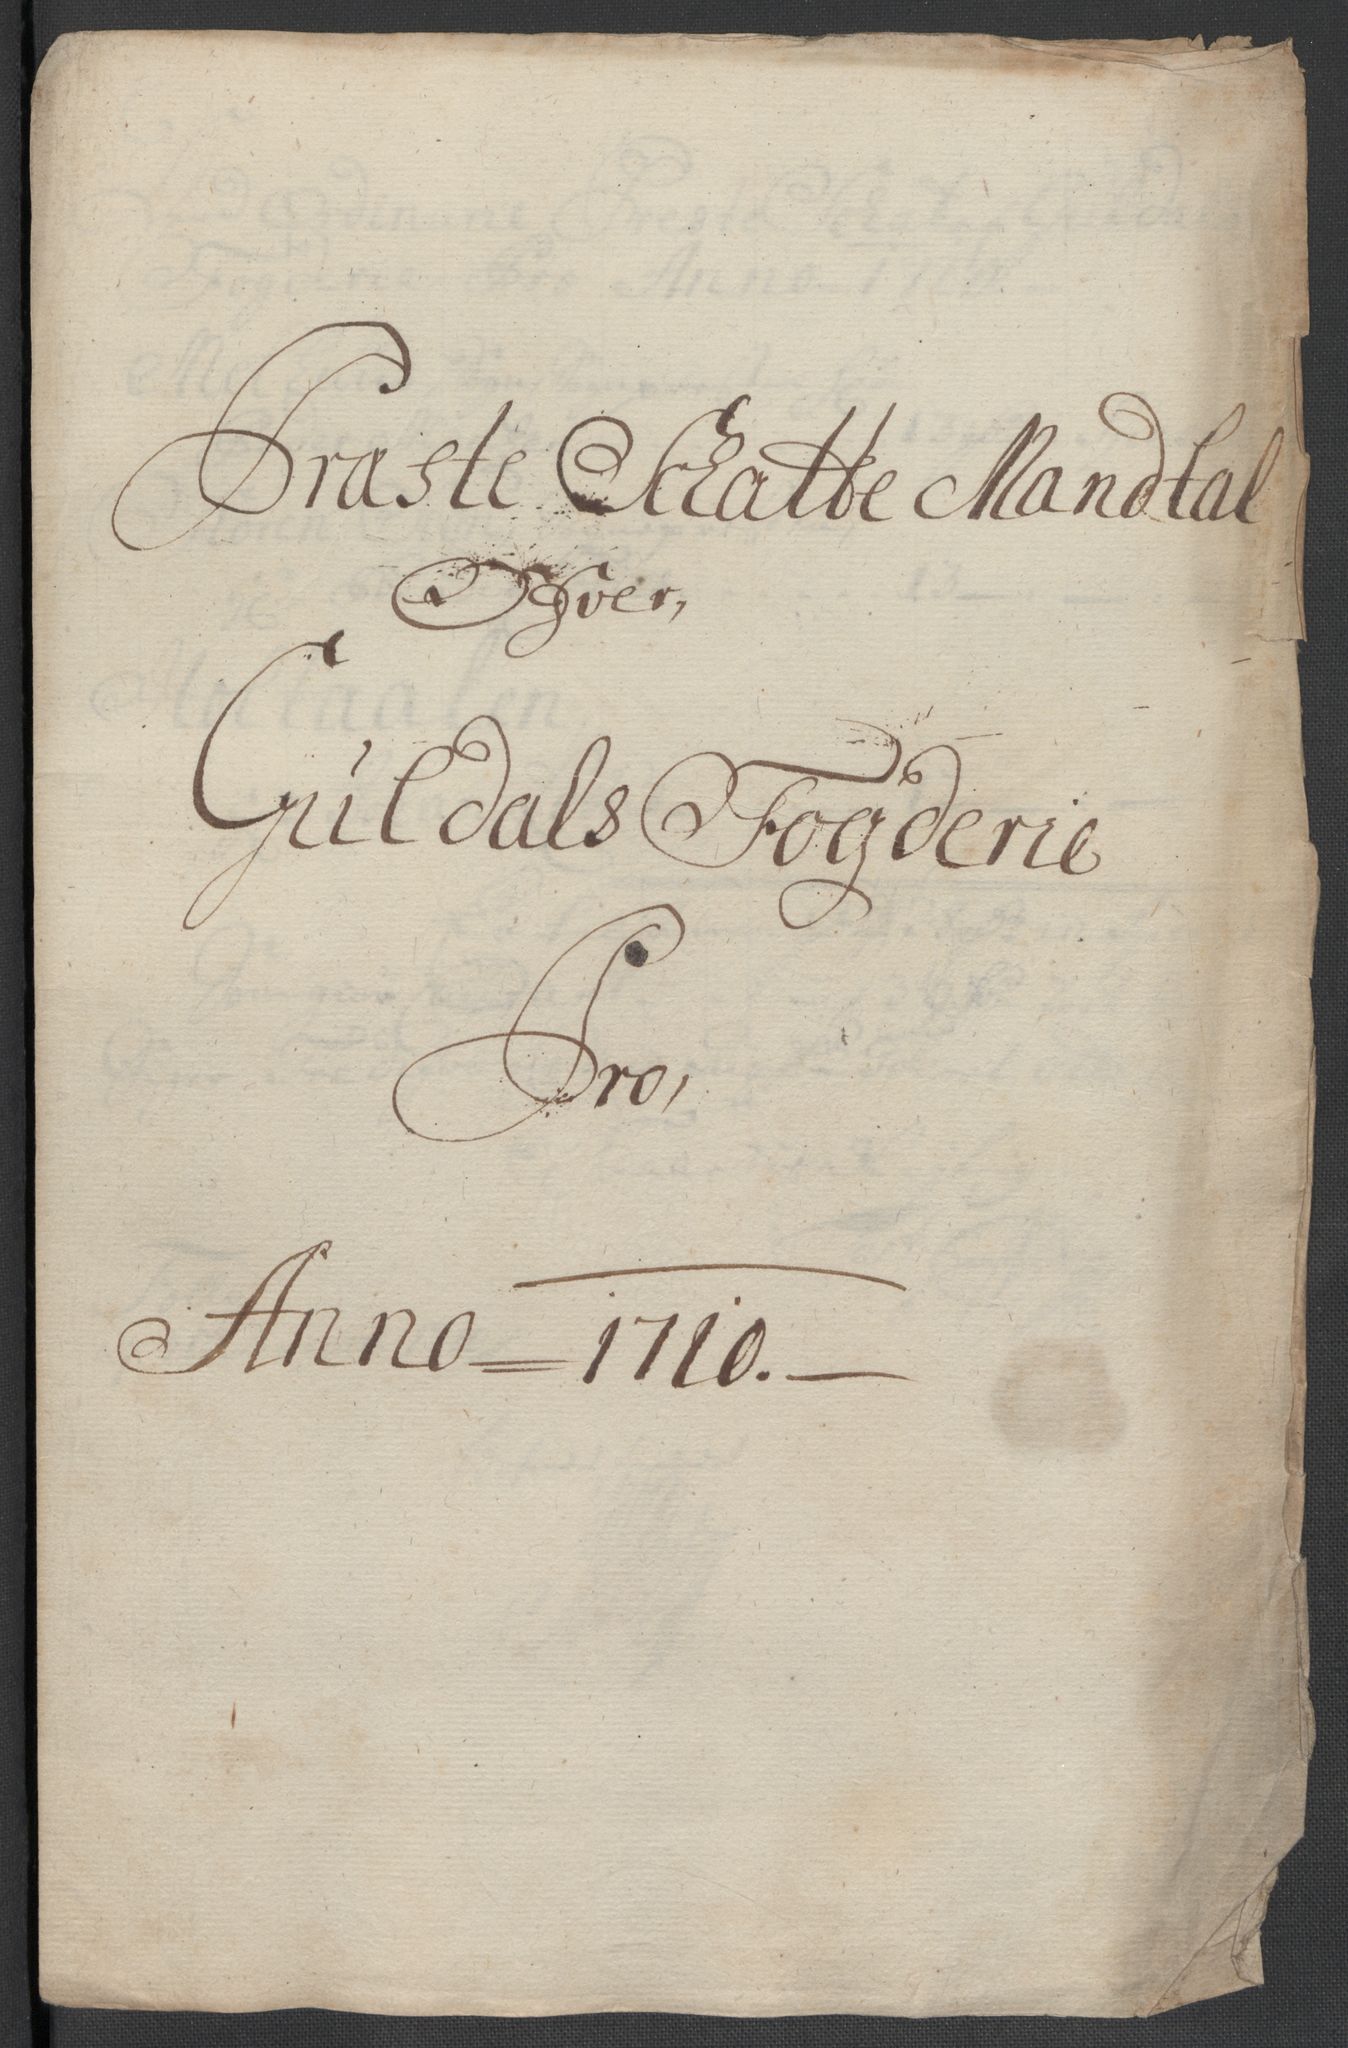 Præste Skatte Mandtal
Ofver,
Guldals Fogderie
Pro,
Anno = 1710. —